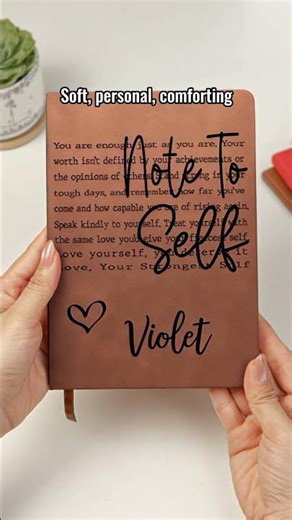 Soft, personal, comforting
You are enough just as you are. Your
worth isn't defined by your achievements or
the opinions of others. and in your
tough days, and remember how far you've
come and how capable you are of rising again.
Speak kindly to yourself, Treat yourself with
the same love you'd give your self
Love yourself, you deserve it
Love, Your Strongest Self
Note To
Self
Violet